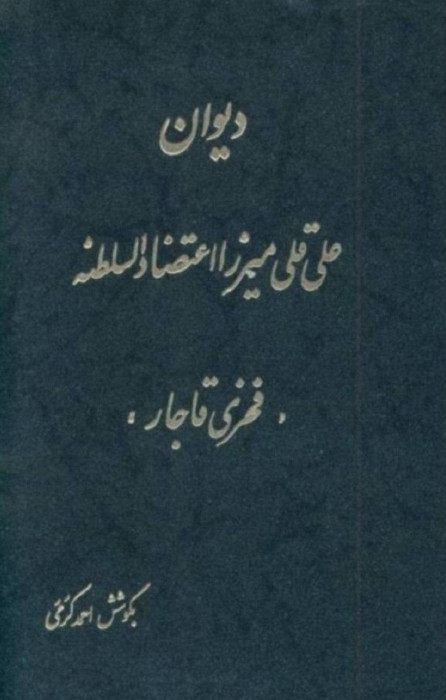 دیوان
علی قلی میرزا اعتضاد السلطنه
، فخری قاجار ،
بکوشش احمد کرمی